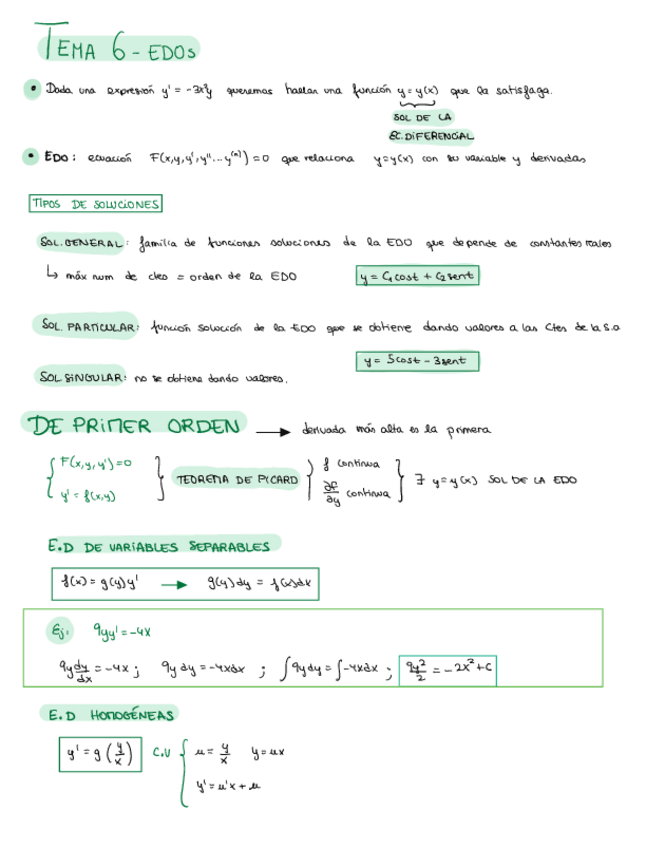 TEMA 6 - EDOs
• Dada una expresión y' = -3x²y queremos hallar una función y = y(x) que la satisfaga.
SOL DE LA
EC. DIFERENCIAL
• EDO: ecuación F(x,y,y',y''...y⁽ⁿ⁾) = 0 que relaciona y=y(x) con su variable y derivadas
TIPOS DE SOLUCIONES
SOL.GENERAL: familia de funciones soluciones de la EDO que depende de constantes reales
↳ máx num de ctes = orden de la EDO y = C₁cost + C₂sent
SOL. PARTICULAR: función solución de la EDO que se obtiene dando valores a las ctes de la S.G
y = 5cost - 3sent
SOL SINGULAR: no se obtiene dando valores.
DE PRIMER ORDEN → derivada más alta es la primera
{ F(x,y,y')=0 } TEOREMA DE PICARD } f continua } ∃ y=y(x) SOL DE LA EDO
y' = f(x,y) ∂F/∂y continua
E.D DE VARIABLES SEPARABLES
f(x) = g(y)y' → g(y)dy = f(x)dx
Ej: 9yy' = -4x
9y dy/dx = -4x ; 9y dy = -4xdx ; ∫9y dy = ∫-4xdx ; 9y²/2 = -2x² + c
E.D HOMOGÉNEAS
y' = g(y/x) C.V { u = y/x y = ux
y' = u'x + u